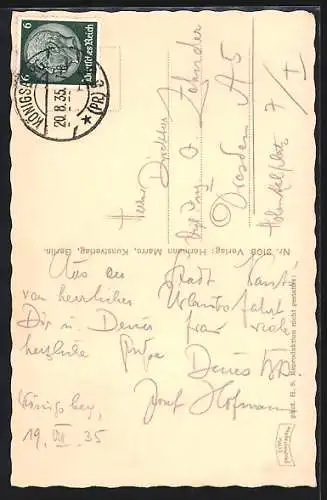 6 Deutsches Reich 6
KÖNIGSBERG (PR) 5
20.8.35.
Herrn Direktor
Dipl Ing O. Zehnder
Dresden A 5
7/I
Nr. 3108 Verlag: Hermann Marro, Kunstverlag, Berlin.
phot. H. S. Reproduktion nicht gestattet!
Aus der Stadt Kants
von herrlicher Urlaubsfahrt
Dir u. Deiner Frau viele
herzliche Grüße
Deines
Josef Hofmann
Königsberg
19. VIII. 35